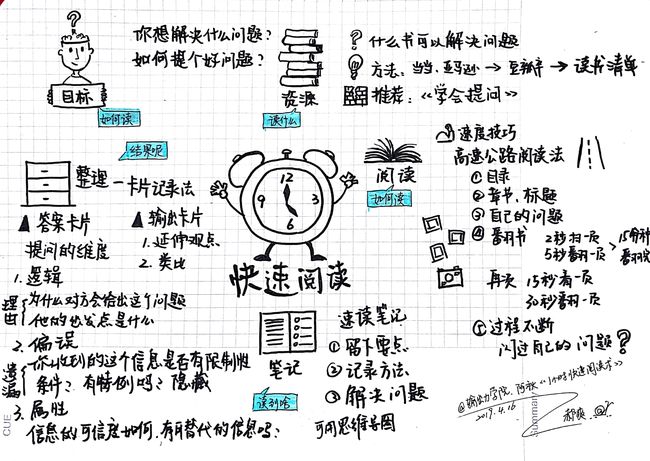 ?
你想解决什么问题?
如何提个好问题?
目标
如何读
资源
读什么
? 什么书可以解决问题
方法: 当当、亚马逊 → 豆瓣 → 读书清单
推荐:《学会提问》
结果呢
整理 — 卡片记录法
答案卡片
提问的维度
1. 逻辑
理由
为什么对方会给出这个问题
他的出发点是什么
2. 偏误
遗漏
你收到的这个信息是否有限制性
条件? 有特例吗? 隐藏
3. 属性
信息的可信度如何,有可替代的信息吗?
输出卡片
1. 延伸观点
2. 类比
12
3
6
9
快速阅读
阅读
如何读
速度技巧
高速公路阅读法
① 目录
② 章节、标题
③ 自己的问题
④ 翻书
2秒扫一页
5秒翻一页
15分钟
再次 15秒看一页
30秒翻一页
⑤ 过程不断
闪过自己的问题?
笔记
读到啥
速读笔记
① 留下要点
② 记录方法
③ 解决问题
可用思维导图
@输出力学院
快速阅读术》
2019.4.16
CUE
Summary